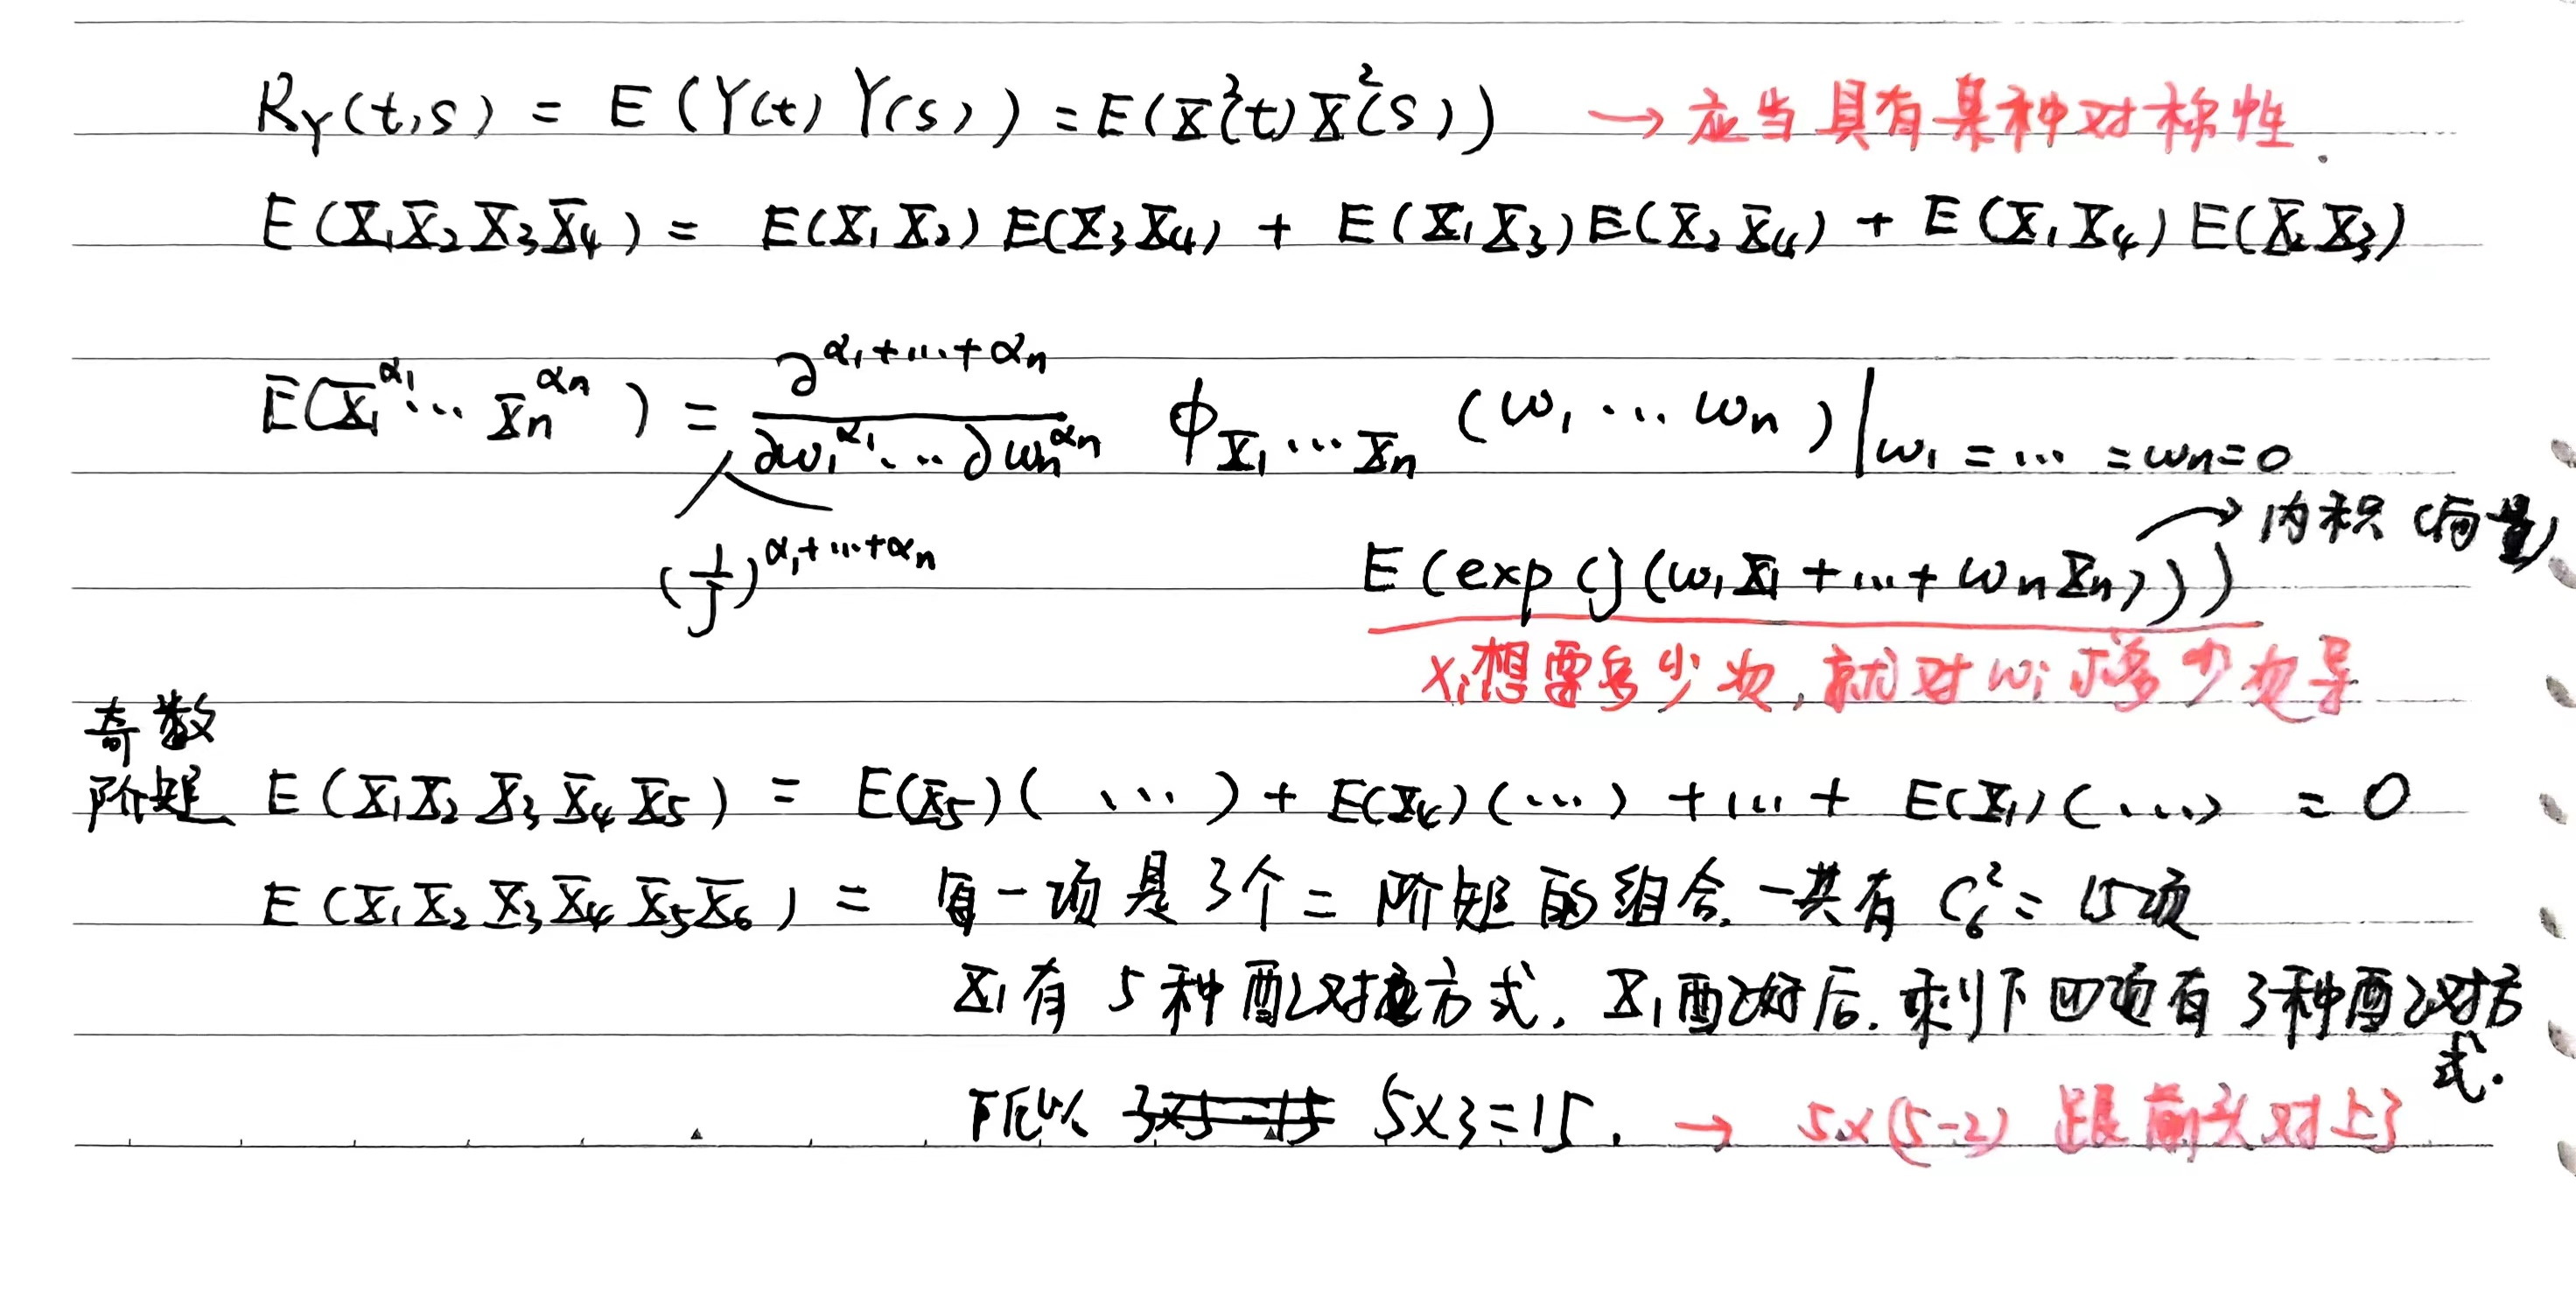 R_Y(t,s) = E(Y(t)Y(s)) = E(X²(t)X²(s)) → 应当具有某种对称性.
E(X₁X₂X₃X₄) = E(X₁X₂)E(X₃X₄) + E(X₁X₃)E(X₂X₄) + E(X₁X₄)E(X₂X₃)
E(X₁^α₁ ⋯ Xₙ^αₙ) = ∂^(α₁+⋯+αₙ) / (∂ω₁^α₁ ⋯ ∂ωₙ^αₙ) ϕ_X₁⋯Xₙ (ω₁ ⋯ ωₙ) |_ω₁=⋯=ωₙ=0
→ 内积(向量)
(1/j)^(α₁+⋯+αₙ) E(exp(j(ω₁X₁+⋯+ωₙXₙ)))
Xᵢ想要多少次,就对ωᵢ求多少次导
奇数
阶矩 E(X₁X₂X₃X₄X₅) = E(X₅)(⋯) + E(X₄)(⋯) + ⋯ + E(X₁)(⋯) = 0
E(X₁X₂X₃X₄X₅X₆) = 每一项是3个二阶矩的组合.一共有 C₆² = 15项
X₁有5种配对方式, X₁配好后.剩下四项有3种配对方
式.
所以 3×5=15 5×3=15. → 5×(5-2) 跟前头对上了